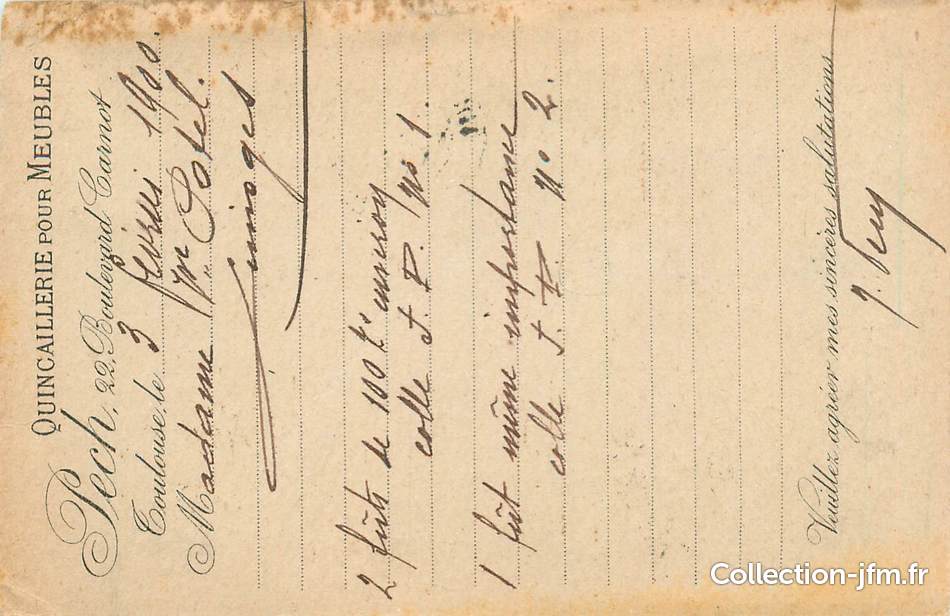 QUINCAILLERIE POUR MEUBLES
Pech, 22, Boulevard Carnot
Toulouse, le 3 1900.
Madame Vve Potel.
Limoges
2 fûts de 100 Ks environ
colle J. P. No 1.
1 fût même importance
colle J. P. No 2.
Veuillez agréer mes sincères salutations
J. Pech
Collection-jfm.fr